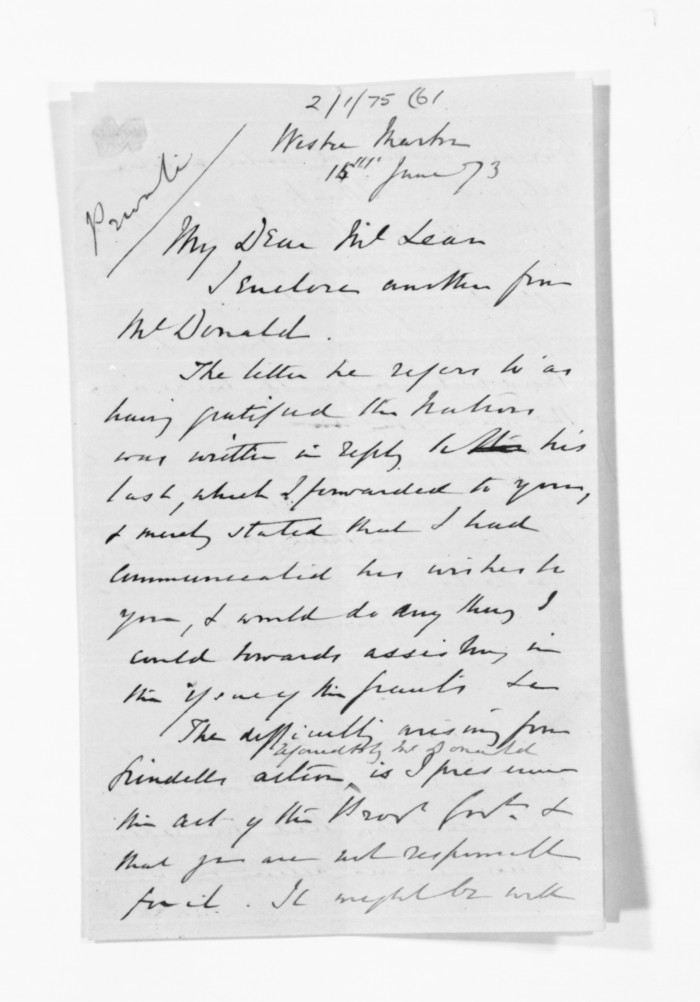 2/1/75 (61
Private
15th June 73
My Dear McLean
I Enclose another from
McDonald.
The letter he refers to as
having gratified the Natives
was written in reply to his
last, which I forwarded to you,
& merely stated that I had
communicated his wishes to
you, & would do any thing I
could towards assisting in
the issue of the grants &c
The difficulty arising from
action, is I presume
the act of the Provl Govt &
that you are not responsible
for it. It might be well